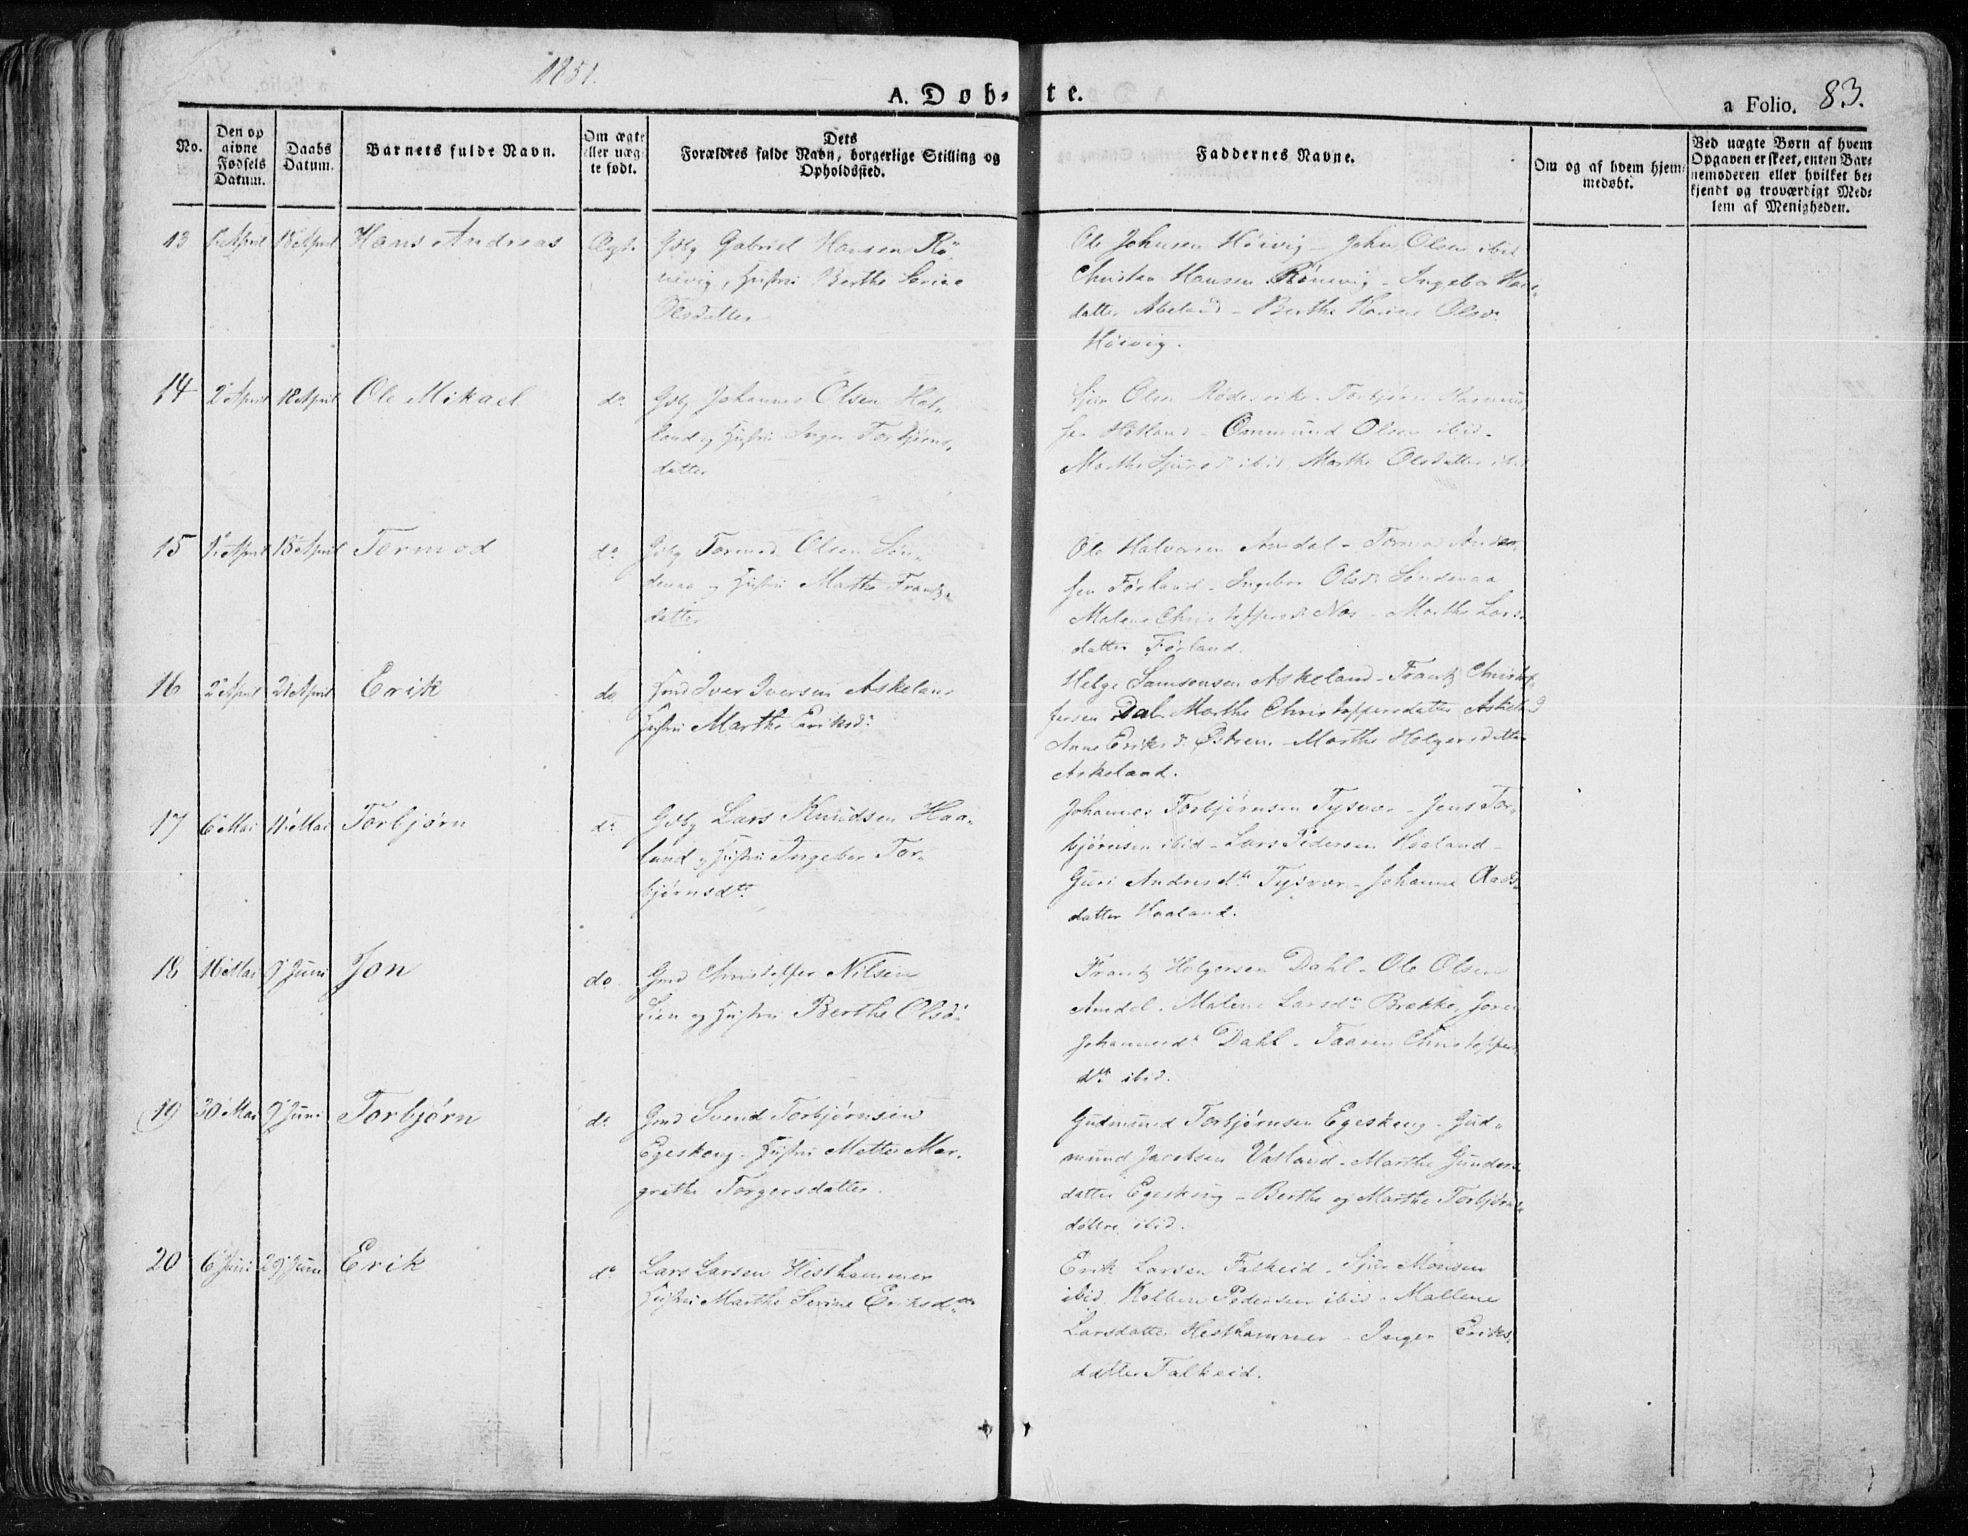 1851.
A. Døb- te.
a Folio. 83.
No.
Den op
givne
Fødsels
Datum.
Daabs
Datum.
Barnets fulde Navn.
Om ægte
eller uæg-
te født.
Dets
Forældres fulde Navn, borgerlige Stilling og
Opholdssted.
Faddernes Navne.
Om og af hvem hjem-
medøbt.
Ved uægte Børn af hvem
Opgaven er skeet, enten Bar-
nemoderen eller hvilket be-
kjendt og troværdigt Med-
lem af Menigheden.
13 April 18 April Hans Andreas Ægte Gdbr Gabriel Hansen Rø-
nevig, Hustru Berthe Serine
Olsdatter
Ole Johnsen Høievig - John Olsen ibid
Christen Hansen Rønevig - Ingebor Hans-
datter Abeland - Berthe Olsd
Høievig.
14 2 April 18 April Ole Mikael do Gdbr Johannes Olsen Het-
land og Hustru Inger Torbjørns-
datter
Sjur Olsen - Torbjørn Rasmus-
sen Hetland - Ommund Olsen ibid -
Marthe Sjursd ibid Marthe Olsdatter ibid
15 April 18 April Tormod do Gdbr Tormod Olsen Søn-
denaa og Hustru Marthe Frantz-
datter
Ole Halvorsen Amdal - Tormod
sen Førland - Ingebor Olsd Søndenaa
Malene Christoffersd - Marthe Lars-
datter Førland.
16 2 April 21 April Erik do Hmd Iver Iversen Askeland
Hustru Marthe Eriksd:
Helge Samsonsen Askeland - Frantz Christof-
fersen Dal - Marthe Christoffersdatter Askeland
Anne Eriksd Østren - Marthe Holgersdatter
Askeland.
17 6 Mai 11 Mai Torbjørn do Gdbr Lars Knudsen Haa-
land og Hustru Ingebor Tor-
bjørnsdtr
Johannes Torbjørnsen Tysvær - Jens Tor-
bjørnsen ibid - Lars Pedersen Haaland -
Guri Andersdtr Tysvær - Johanne
datter Haaland.
18 16 Mai 9 Juni Jon do Gmd Christoffer Nilsen
Lien og Hustru Berthe Olsd:
Frantz Holgersen Dahl - Ole Olsen
Amdal - Malene Larsdtr Brekke,
Johannesd Dahl - Christoffers
dtr ibid.
19 30 Mai 9 Juni Torbjørn do Gmd Svend Torbjørnsen
Egeskoug - Hustru Mette Mar-
grethe Torgersdatter.
Gudmund Torbjørnsen Egeskoug - Gud-
mund Jacobsen Vatland - Marthe Gunders-
datter Egeskoug - Berthe og Marthe Torbjørns-
døttre ibid.
20 6 Juni 29 Juni Erik do Lars Larsen Hesthammer
Hustru Marthe Serine Eriksdtr
Erik Larsen Falkeid - Sjur Monsen
ibid. Kolben Pedersen ibid - Mallene
Larsdatter Hesthammer - Inger Eriks-
datter Falkeid.